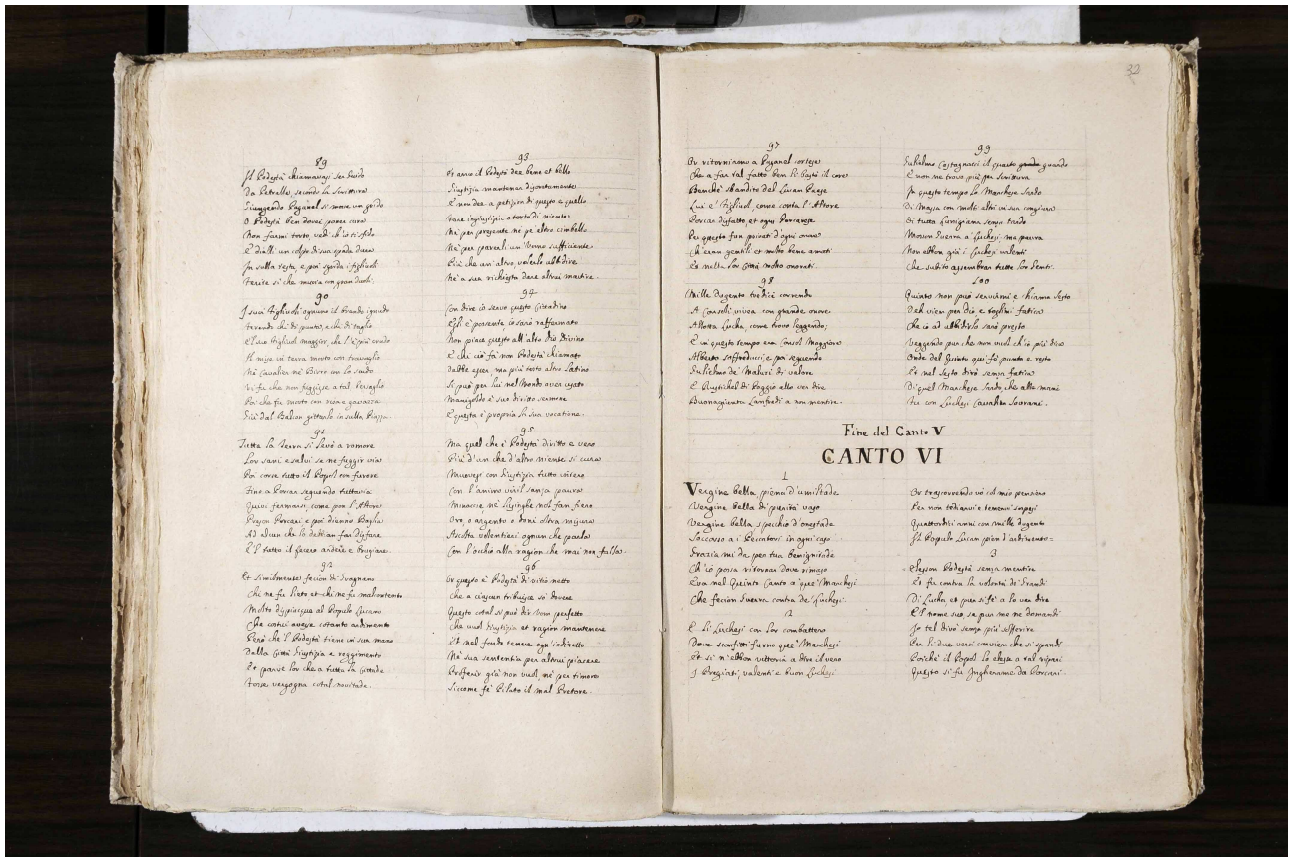 89
Il Podestà chiamavasi ser Guido
Da Petrella, secondo la Scrittura
Giungendo Paganel si messe un grido
O Podestà ben dovei porre cura
Non farmi torto, ved: ch'io ti sfido
E dralli un colpo di sua spada dura
In sulla testa, e poi sgrida i figliuoli
ferite sì che muoia con gran duoli.
90
I suoi figliuoli ognuno il brando ignudo
ferendo chi di punta, e chi di taglio
E l suo figliuol maggior, che l'è più crudo
Il mise in terra morto con travaglio
Nè Cavalier nè Birro un lo scudo
Vi fu che non fuggisse a tal bersaglio
Poi che fu morto con risa e gavazza
Giù dal Balcon gittarlo in sulla Piazza.
91
Tutta la Terra si levò a romore
Lor sani e salvi se ne fuggir via
Poi corse tutto il Popol con furore
Fino a Porcar seguendo tuttavia
Quivi fermarsi, come pon l'Altore
Preson Porcari e poi dienno Baglia
Ad alcun che lo debbian far disfare
E l tutto il fecero ardere e brugiare.
92
Et similmente fecion di Dragnano
Chi ne fu lieto et chi ne fu malcontento
Molto dispiacque al Popolo Lucano
Che costui avesse cotanto ardimento
Però che 'l Podestà tiene in sua mano
Dalla Città Giustizia e reggimento
Et parve lor che a tutta la Cittade
fosse vergogna cotal novitade.
93
Et anco il Podestà dee bene et bello
Giustizia mantener discretamente
E non dee a petizion di questo e quello
fare ingiustizia a torto di niente
Nè per presente nè per altro cimbello
Nè per parerli un' Uomo sufficiente
Più che un' altro, volerlo ubbidire
Nè a sua richiesta dare altrui martire.
94
Con dire io servo questo Cittadino
Egli è possente io sarò raffermato
Non piace questo all'alto Dio Divino
E chi ciò fa non Podestà chiamato
Debbe esser, ma più tosto altro Latino
Si può per lui nel Mondo aver usato
Manigoldo è suo diritto sermone
E questa è propria la sua vocatione.
95
Ma quel che è Podestà diritto e vero
Più d'un che d'altro niente si cura
Muovesi con Giustizia tutto intero
Con l'animo viril sanza paura
Minacce nè lusinghe nol fan fiero
Oro, o argento o doni oltra misura
Ascolta volentieri ognun che parla
Con l'occhio alla ragion che mai non falla.
96
Or questo è Podestà di vitio netto
Che a ciascun tribuisce so' dovere
Questo cotal si può dir Uom perfetto
Che vuol Giustizia et ragion mantenere
Et nel fondo temere ogn' indiretto
Nè sua sententia per altrui piacere
Proferir già non vuol, nè per timore
Siccome fe' Pilato il mal Pretore.
32
97
Or ritorniamo a Paganel cortese
Che a far tal fatto ben li bastò il core
Benchè sbandito del Lucan Paese
Lui e' figliuol, come conta l'Altore
Porcar disfatto, et ogni Porcarese
Per questo fun privati d'ogni onore
Ch'eran gentili et molto bene amati
Et nella lor Città molto onorati.
98
Mille dugento tredici correndo
A Consoli vivea con grande onore
Allotta Lucha, come trovo leggendo;
E in questo tempo era Consol Maggiore
Alberto Soffreducci, e poi seguendo
Gulielmo de' Malusi di valore
E Rustichel di Poggio allo ver dire
Buonagiunta Lanfredi a non mentire.
99
Gulielmo Castagnacci il quarto quando
E non ne trovo più per Scrittura
In questo tempo lo Marchese Sardo
Di Massa con molti altri in sua congiura
Di tutta Lunigiana senza tardo
Mosson Guerra a' Luchesi ma paura
Non ebbon già i Luchesi valenti
Che subito assembran tutte lor Genti.
100
Quinto non può servirmi e chiamo Sesto
Deh vien per Dio, e voglimi fatica
Che io ad ubbidirlo sarò presto
Veggendo pur che non vuol ch'io più dica
Onde del Quinto qui fo punto e resto
Et nel Sesto dirò senza fatica
Di quel Marchese Sardo, che alle mani
Fu con Luchesi Cavalier Soprani.
Fine del Canto V
CANTO VI
1
Vergine bella, piena d'umiltade
Vergine bella di purità vaso
Vergine bella specchio d'onestade
Soccorso a i Peccatori in ogni caso
Grazia mi da per tua benignitade
Ch'io possa ritornar dove rimaso
Era nel Quinto Canto a que' Marchesi
Che fecion Guerra contra de' Luchesi.
2
E li Luchesi con lor combattero
Dove sconfitti furno que' Marchesi
Et sì n'ebbon vittoria a dire il vero
I Pregiati, valenti e buon Luchesi
Or trascorrendo vò col mio pensiero
Per non tediarvi e tenervi sospesi
Quattordici anni con mille dugento
Il Popolo Lucan pien d'ardimento=
3
Elesson Podestà senza mentire
Et fu contra la volontà de' Grandi
Di Lucha et pur si fe' a lo ver dire
E l nome suo, se pur mo ne domandi
Io tel dirò senza più sofferire
Per li due versi convien che si spandi
Poichè il Popol lo elesse a tal ripari
Questo si fu Inghirame da Porcari.